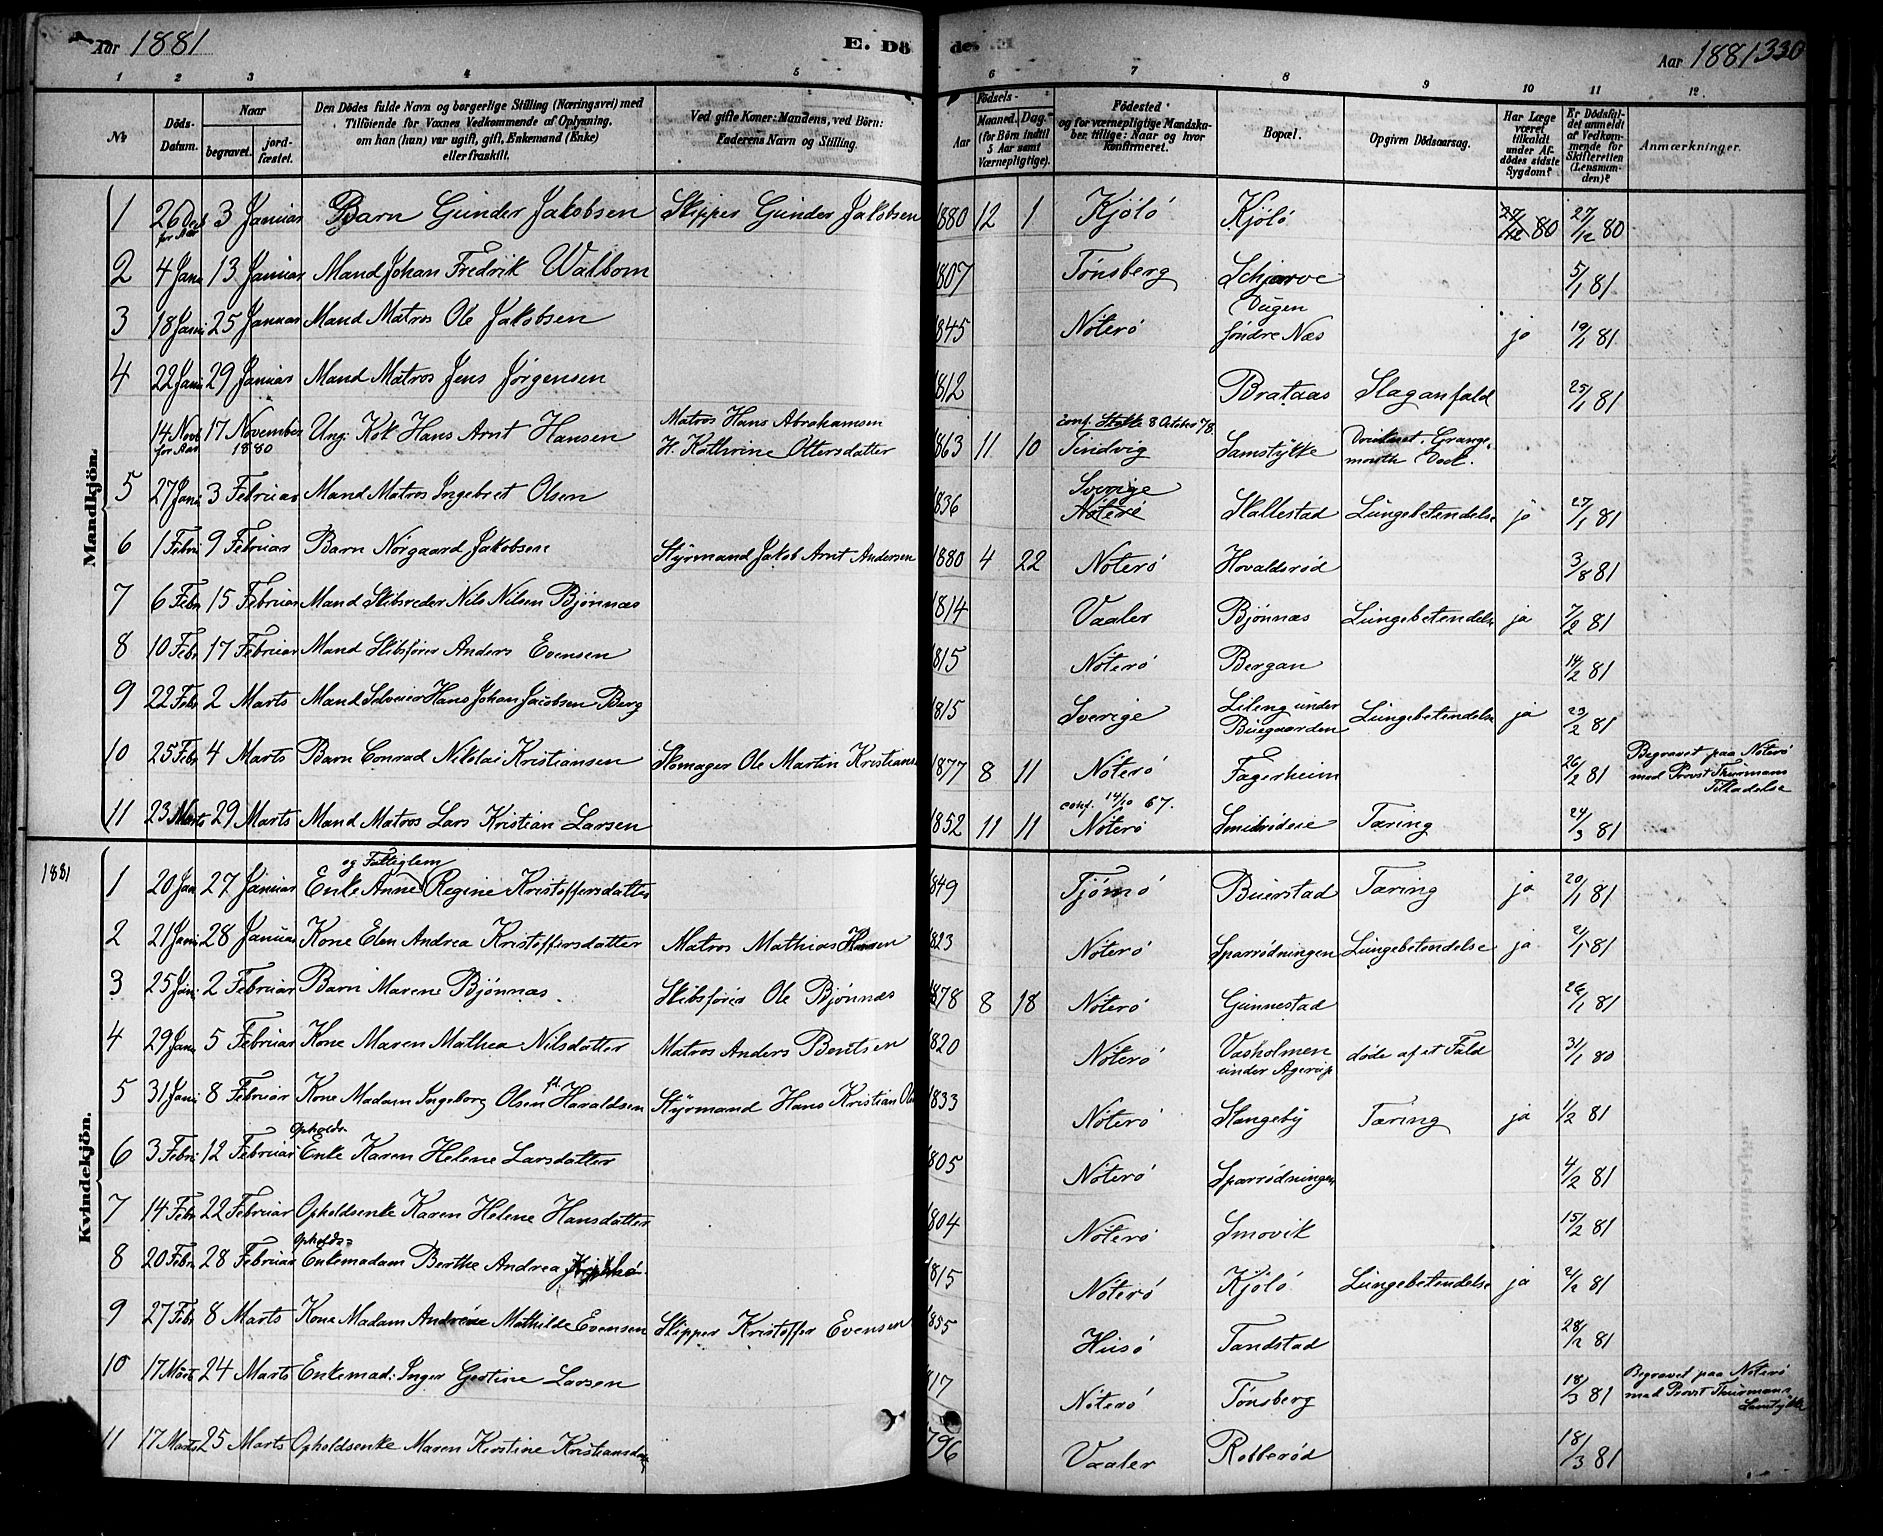 Aar 1881
E. Dö
de
Aar 1881 330
1 2 3 4 5 6 7 8 9 10 11 12
No
Döds-Datum.
Naar
begravet.
jordfæstet.
Den Dödes fulde Navn og borgerlige Stilling (Næringsvei) med
Tilföiende for Voxnes Vedkommende af Oplysning,
om han (hun) var ugift, gift, Enkemand (Enke)
eller fraskilt.
Ved gifte Koner: Mandens, ved Börn:
Faderens Navn og Stilling.
Födsels-
Aar
Maaned.
Dag.
(for Börn indtil
5 Aar samt
Værnepligtige).
Födested
og for værnepligtige Mandska-
ber tillige: Naar og hvor
konfirmeret.
Bopæl.
Opgiven Dödsaarsag.
Har Læge
været
tilkaldt
under Af-
dödes sidste
Sygdom?
Er Dödsfal-
det anmeldt
af Vedkom-
mende for
Skifteretten
(Lensman-
den)?
Anmærkninger.
Mandkjön.
1 26 Dcb for Aar 3 Januar Barn Gunder Jakobsen Skipper Gunder Jakobsen 1880 12 1 Kjölö Kjölö 27/12 80 27/12 80
2 4 Jana 13 Januar Mand Johan Fredrik Walbom 1807 Tönsberg Schjærve 5/1 81
3 18 Jani 25 Januar Mand Matros Ole Jakobsen 1845 Nöterö Dugen söndre Næs jo 19/1 81
4 22 Jani 29 Januar Mand Matros Jens Jörgensen 1812 Brataas Slaganfald 25/1 81
14 Novb for Aar 17 November 1880 Ung: Kok Hans Arnt Hansen Matros Hans Abrahamsen
H. Kathrine Ottersdatter 1863 11 10 conf. Stokke 8 October 78. Tindvig Samstykke Druknet. Grange-
mouth Dock.
5 27 Jani 3 Februar Mand Matros Ingebret Olsen 1836 Sverige Nöterö Skallestad Lungebetendelse jo 27/1 81
6 1 Febri 9 Februar Barn Nörgaard Jakobsen Styrmand Jakob Arnt Andersen 1880 4 22 Nöterö Hovalderöd 3/8 81
7 6 Febr 15 Februar Mand Skibsreder Nils Nilsen Bjönnæs 1814 Vaaler Bjönnæs Lungebetendelse ja 7/2 81
8 10 Febr 17 Februar Mand Skibsförer Anders Evensen 1815 Nöterö Bergan 14/2 81
9 22 Febr 2 Marts Mand Selveier Hans Johan Jacobsen Berg 1815 Sverige Lileng under
Buegaarden Lungebetendelse ja 23/2 81
10 25 Febr 4 Marts Barn Conrad Nikolai Kristiansen Skomager Ole Martin Kristians 1877 8 11 Nöterö Fagerheim 26/2 81 Begravet paa Nöterö
med Provst Thurmans
Tilladelse
11 23 Marts 29 Marts Mand Matros Lars Kristian Larsen 1852 11 11 conf. 14/10 67. Nöterö Tæring 24/3 81
1881
Kvindekjön.
1 20 Jan 27 Januar Enke og Fattiglem Anne Regine Kristoffersdatter 1849 Tjömö Buerstad Tæring ja 20/1 81
2 21 Jani 28 Januar Kone Elen Andrea Kristoffersdatter Matros Mathias Hansen 1823 Nöterö Sparrödningen Lungebetendelse ja 2/1 81
3 25 Jani 2 Februar Barn Marene Bjönnæs Skibsförer Ole Bjönnæs 1878 8 18 Nöterö Gunnestad 26/1 81
4 29 Jana 5 Februar Kone Maren Mathea Nilsdatter Matros Anders Bentsen 1820 Nöterö Vasholmen
under Agerup döde af et Fald 31/1 80
5 31 Jani 8 Februar Kone Madam Ingeborg Olsen fd. Haraldsen Styrmand Hans Kristian Ols 1833 Nöterö Slangeby Tæring ja 1/2 81
6 3 Febri 12 Februar Opholds- Enke Karen Helene Larsdatter 1805 Nöterö Sparrödningen 4/2 81
7 14 Febr 22 Februar Opholdsenke Karen Helene Hansdatter 1804 Nöterö Smovik 15/2 81
8 20 Febr 28 Februar Opholds- Enkemadam Berthe Andrea 1815 Nöterö Kjölö Lungebetendelse ja 21/2 81
9 27 Febr 8 Marts Kone Madam Andréne Mathilde Evensen Skipper Kristoffer Evensen 1855 Husö Tandstad 28/2 81
10 17 Marts 24 Marts Enkemad: Inger Gertine Larsen 1817 Nöterö Tönsberg 18/3 81 Begravet paa Nöterö
med Provst Thurmans
Samtykke
11 17 Marts 25 Marts Opholdsenke Maren Kirstine Kristiansdatter 1796 Vaaler Robberöd 18/3 81